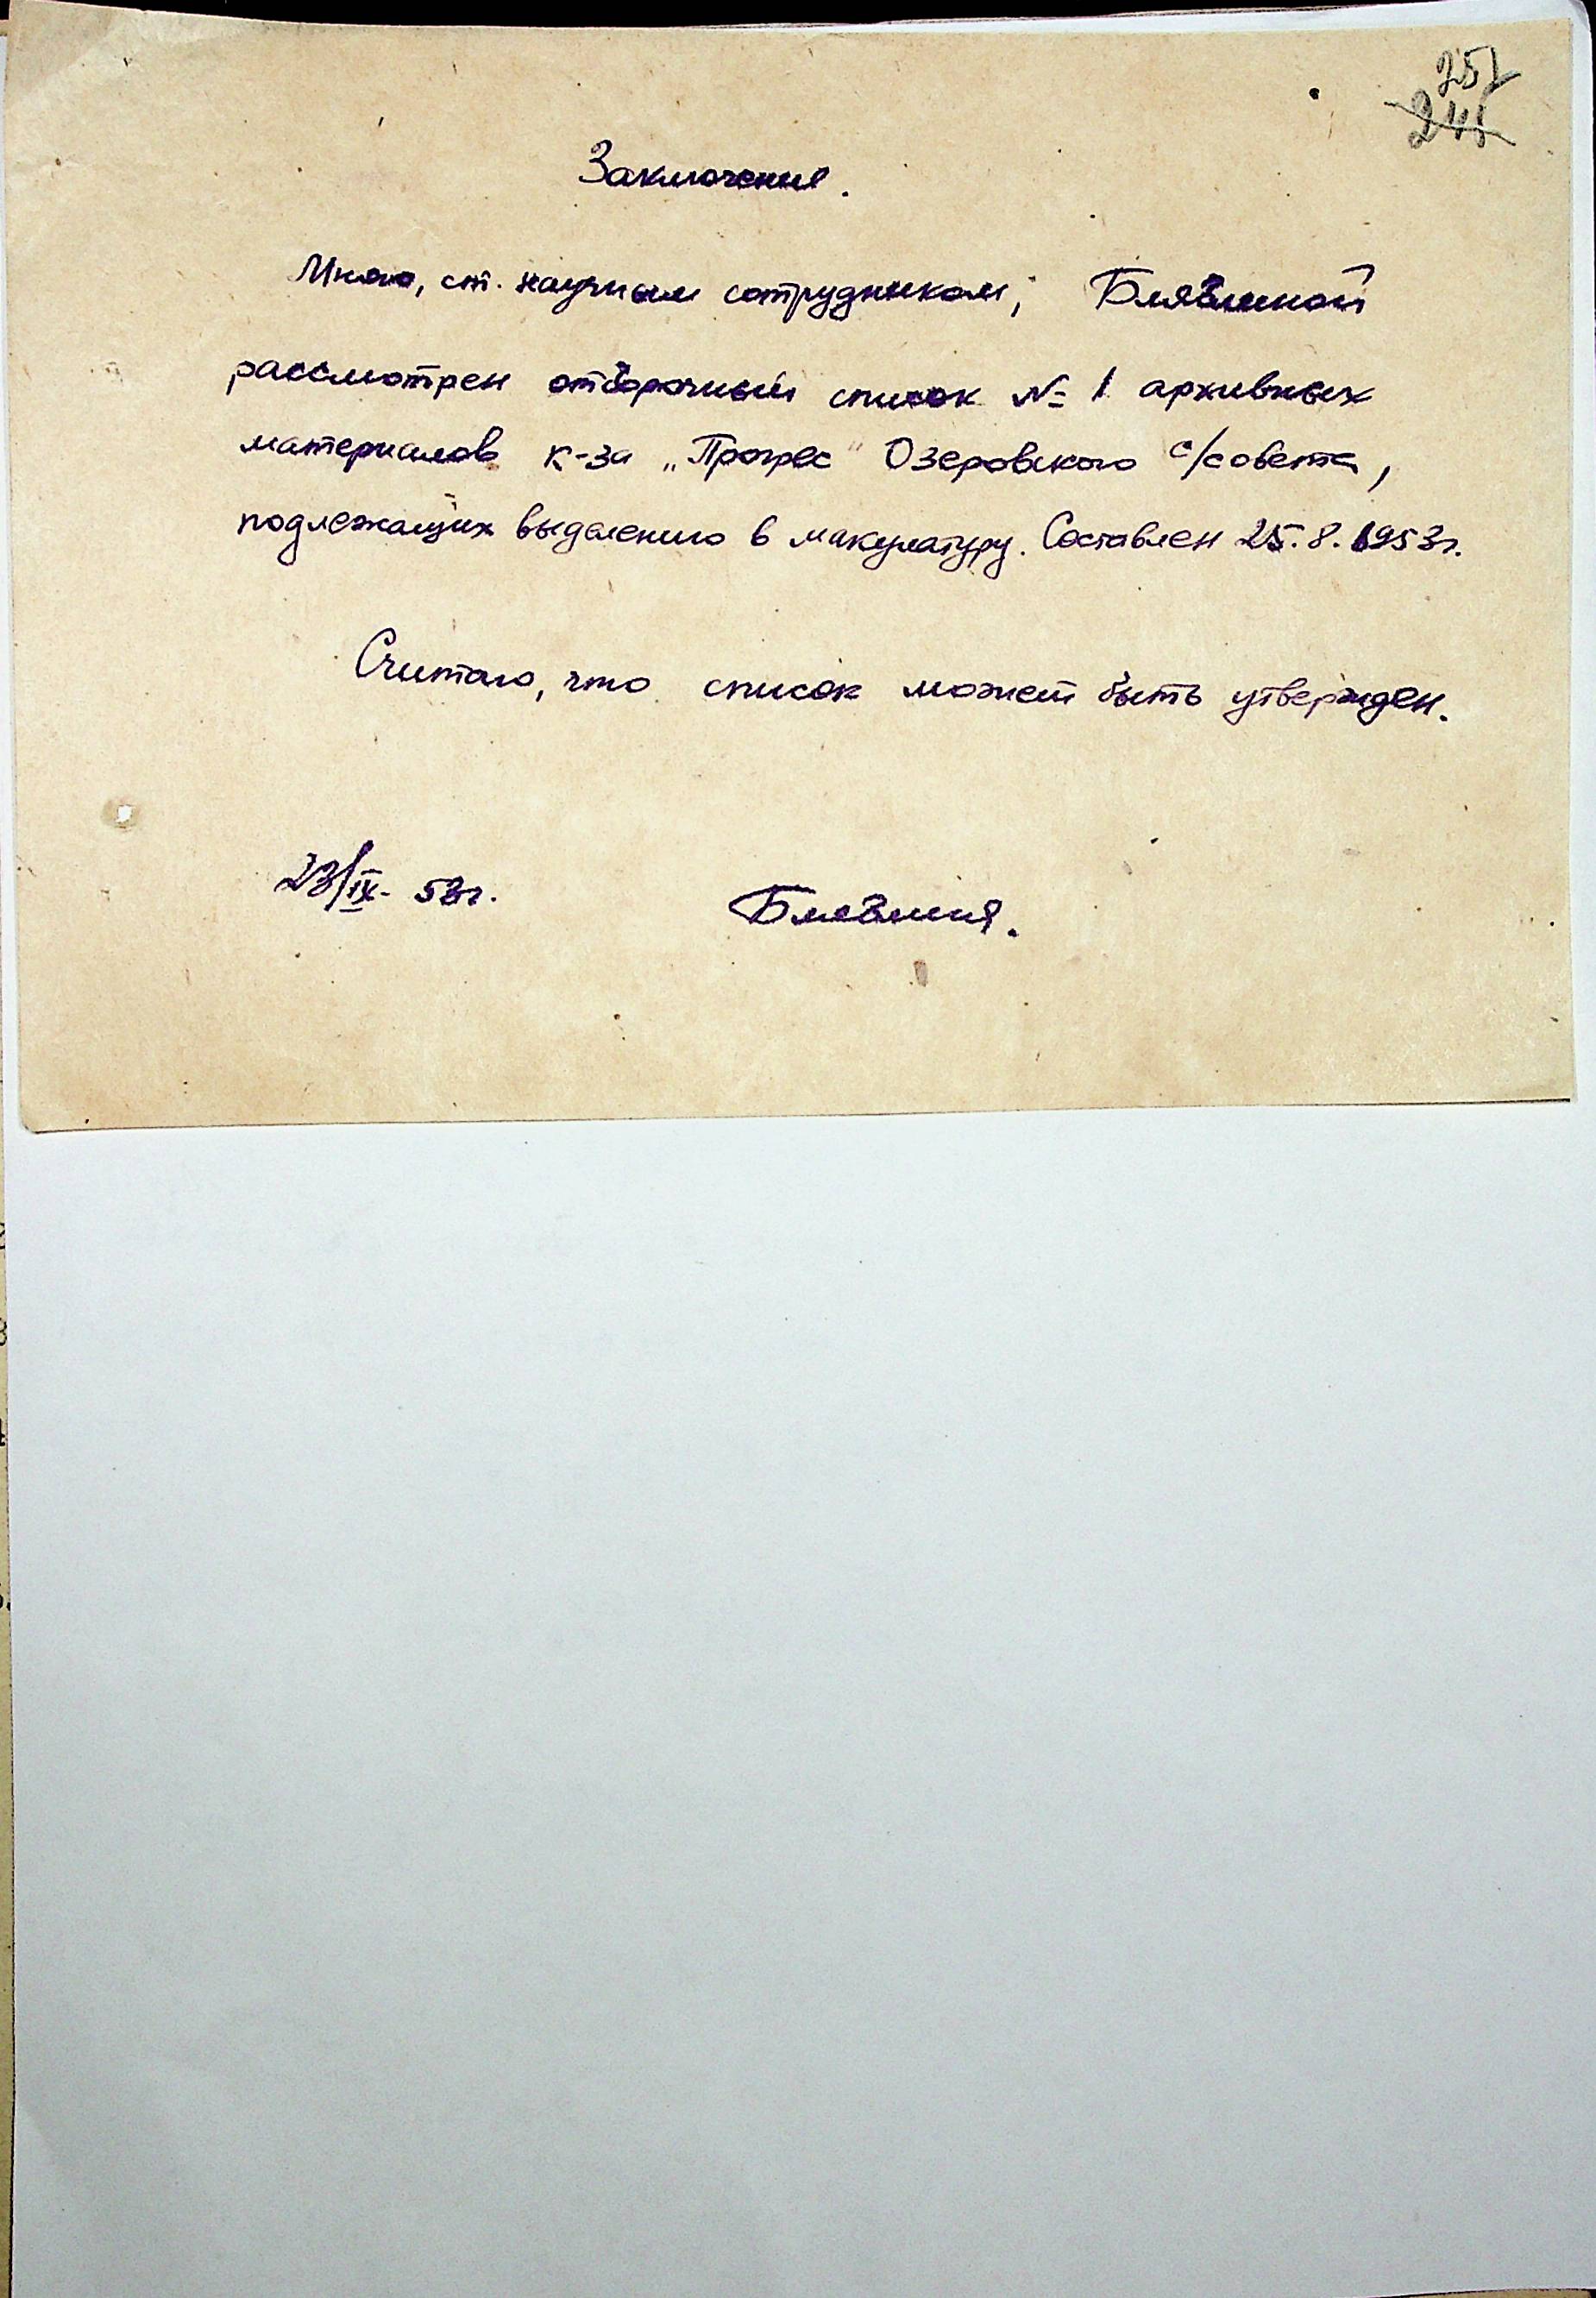 251
241
Заключения.
Мною, ст. научным сотрудником, Блявиной
рассмотрен отборочный список № 1 архивных
материалов к-за „Прогрес" Озеровского с/совета,
подлежащих выделению в макулатуру. Составлен 25.8.1953г.
Считаю, что список может быть утвержден.
23/IX- 53г.